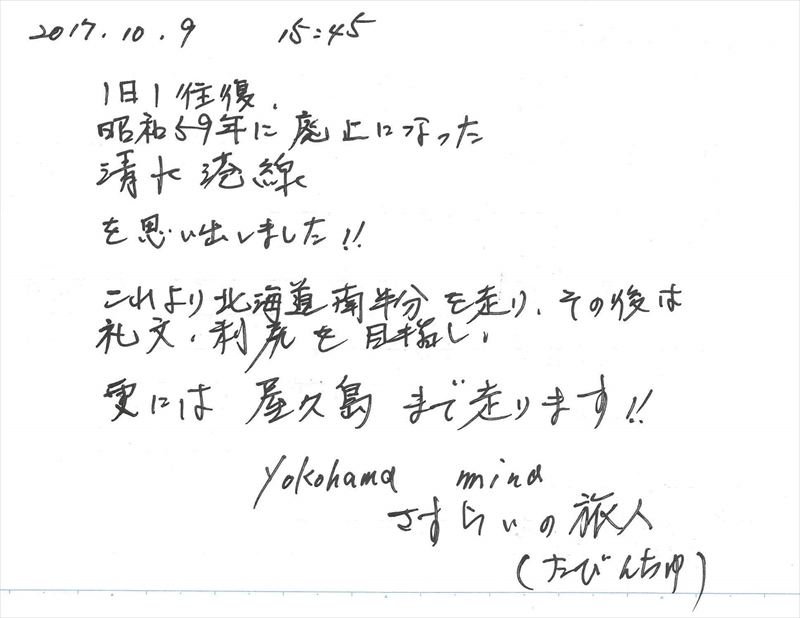 2017.10.9 15:45
1日1往復、
昭和59年に廃止になった
清水港線
を思い出しました!!
これより北海道南半分を走り、その後は
礼文、利尻を目指し、
更には 屋久島 まで走ります!!
Yokohama mind
さすらいの旅人
(たびんちゅ)